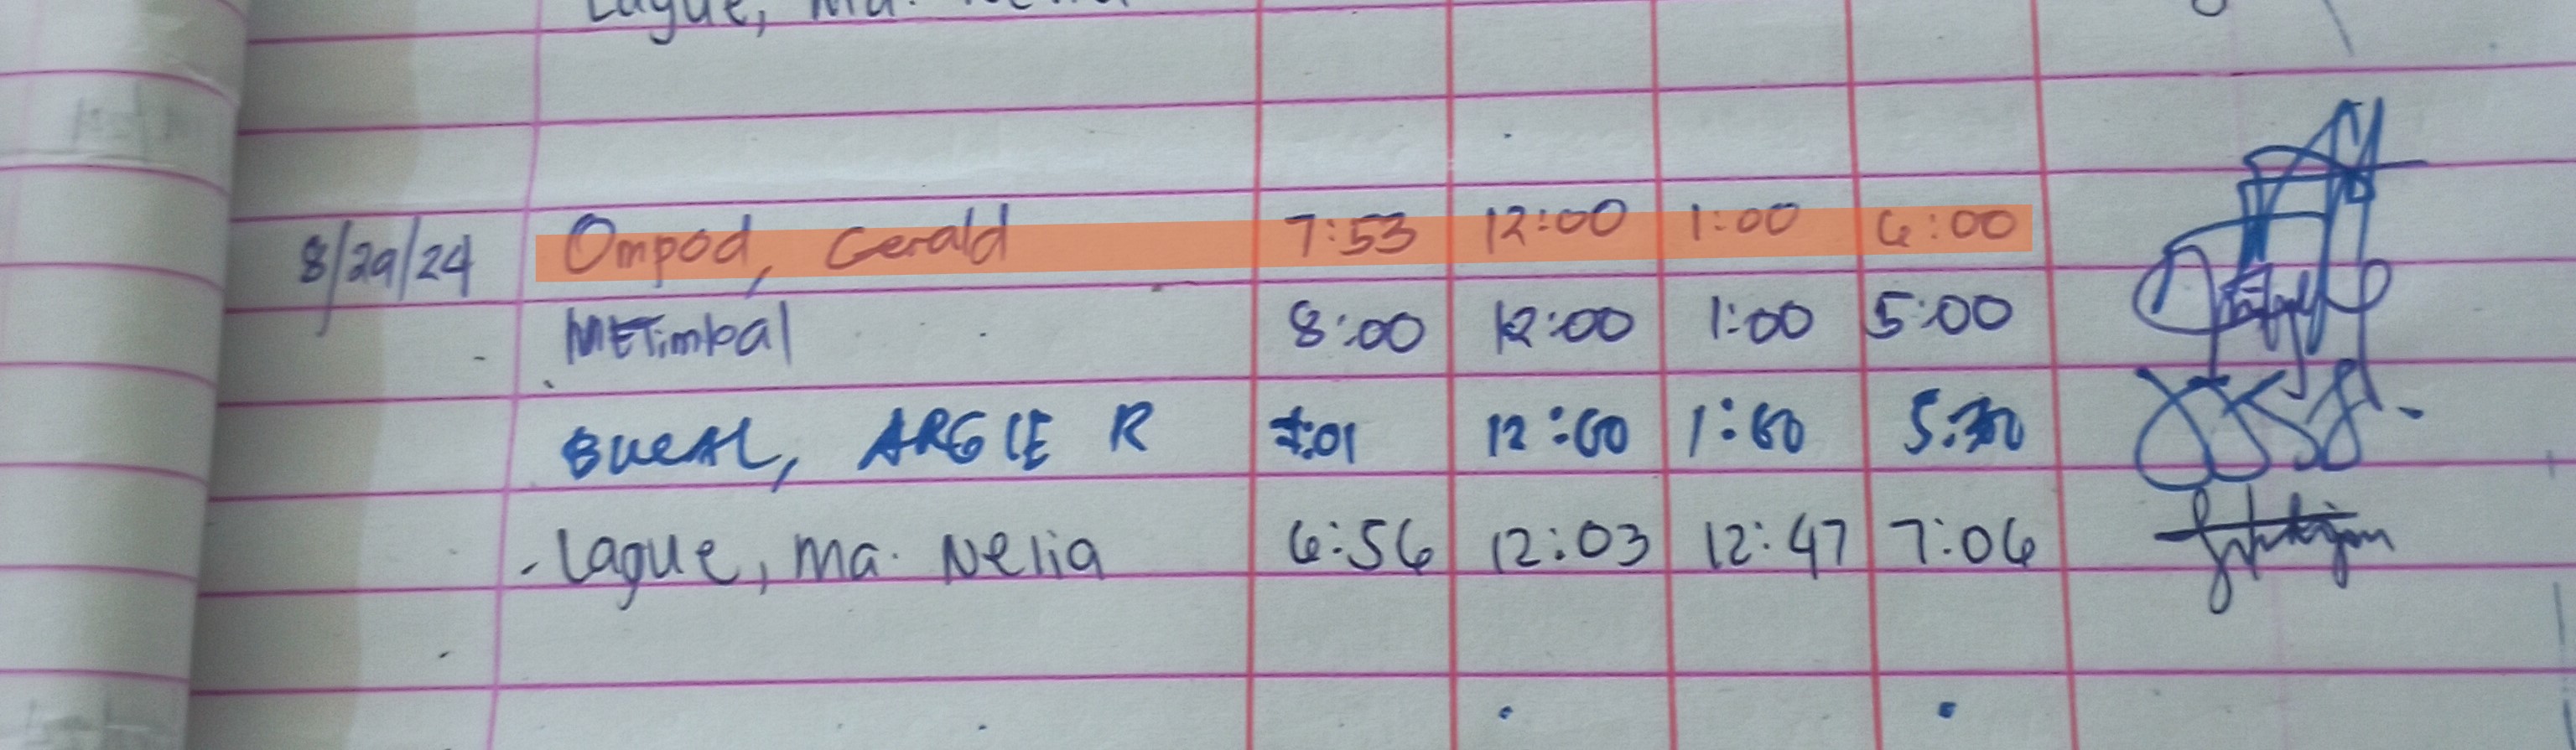 Lague, Ma. Nelia
8/29/24 Ompod, Gerald 7:53 12:00 1:00 6:00
METimbal 8:00 12:00 1:00 5:00
BUCAL, ARGIE R 7:01 12:00 1:00 5:30
Lague, Ma. Nelia 6:56 12:03 12:47 7:06